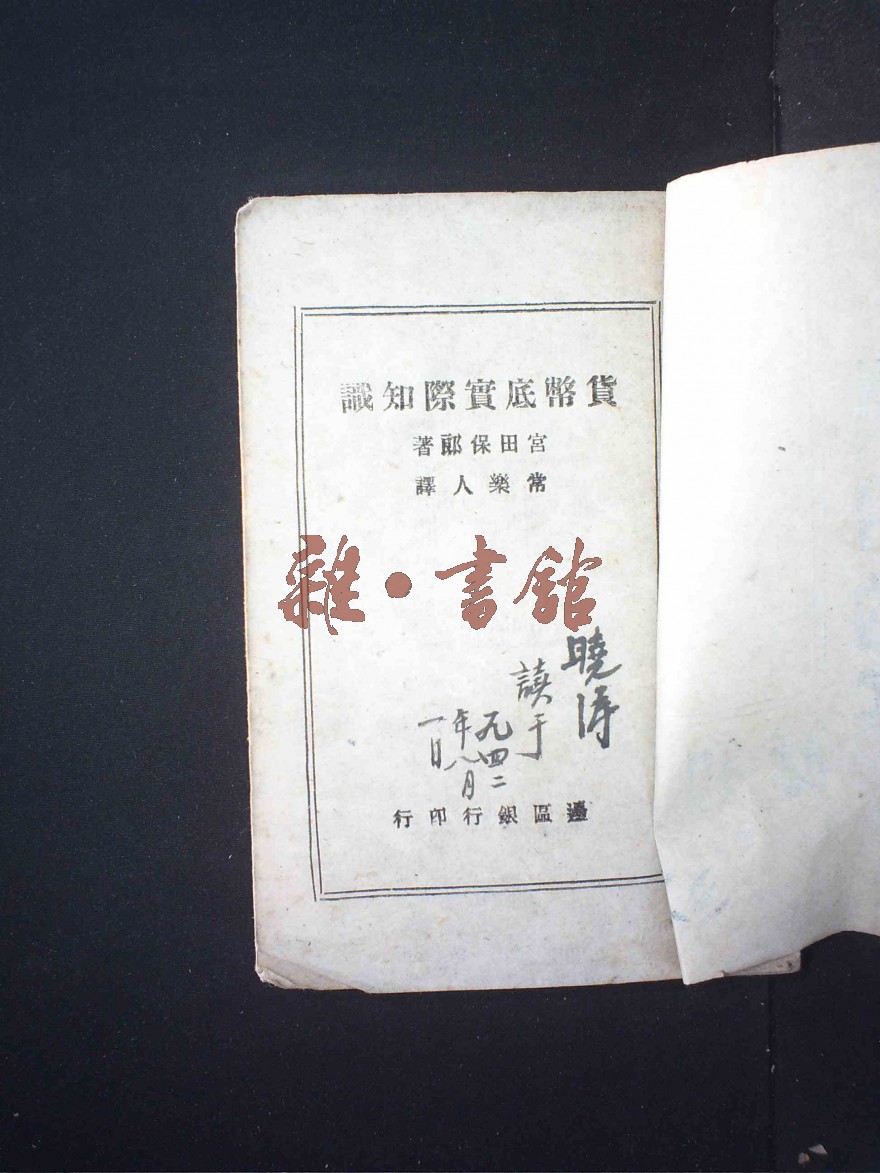 貨幣底實際知識
宮田保郎著
常樂人譯
雜·書館
曉濤
讀于
一九四二
年八月
一日
邊區銀行印行